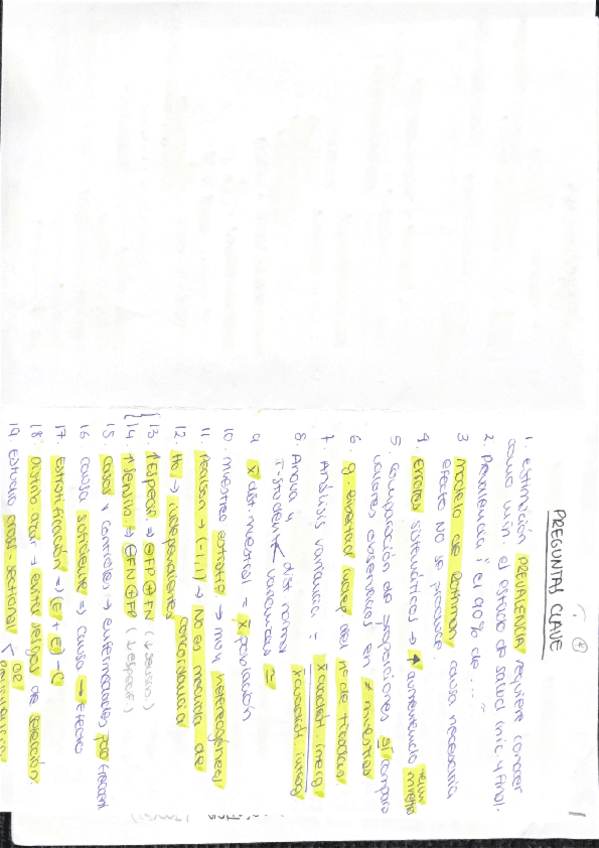 PREGUNTAS CLAVE
1. estimación PREVALENCIA requiere conocer
como mín. el estado de salud inic y final.
2. Prevalencia: el 90% de ... "
3 modelo de Rothman causa necesaria
efecto NO se produce
4. errores sistemáticos → ↑ aumentando
5. comparación de proporciones si comparo
valores observados en ≠ muestras
6. g. libertad indep del nº de
7. Análisis varianza =
8. Anova y dist normal
T-student < varianzas =
9 x̄ dist. muestral = x̄ población
10. muestreo estrato → muy heterogéneos
11. Pearson → (-1,1) → No es medida de
concordancia
12. Ho → independientes
13. ↑ Especif. ⇒ ⊖FP ⊕FN (↓ sensib)
14. ↑ sensib ⇒ ⊖FN ⊕FP (↓ especif)
15 casos y controles → enfermedades poco frecuent
16 causa suficiente ⇒ causa → efecto
17. Estratificación ⇒ (E + E) - C
18. evitar sesgos de selección.
19. Estudio cross-sectional < OR